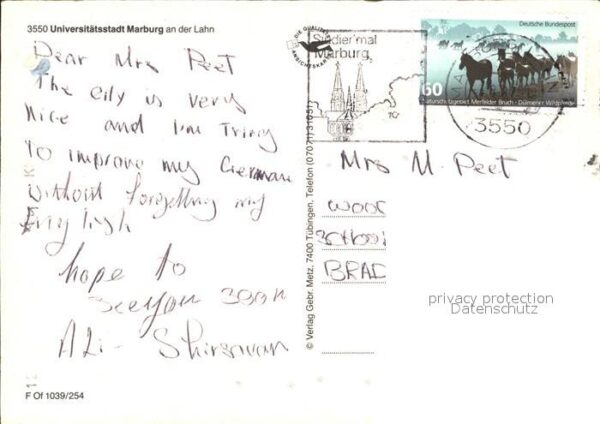 3550 Universitätsstadt Marburg an der Lahn
Dear Mrs Peet
The city is very
Nice and I'm Triing
To improve my German
without forgetting my
English
hope to
see you soon
Ali - Shirswan
F Of 1039/254
© Verlag Gebr. Metz, 7400 Tübingen, Telefon (07071) 31051
DIE QUALITÄTS
ANSICHTSKARTE
Studier'mal
Marburg
Deutsche Bundespost
60
Naturschutzgebiet Merfelder Bruch - Dülmener Wildpferde
3550
Mrs M. Peet
WOOD
SCHOOL
BRAD
privacy protection
Datenschutz